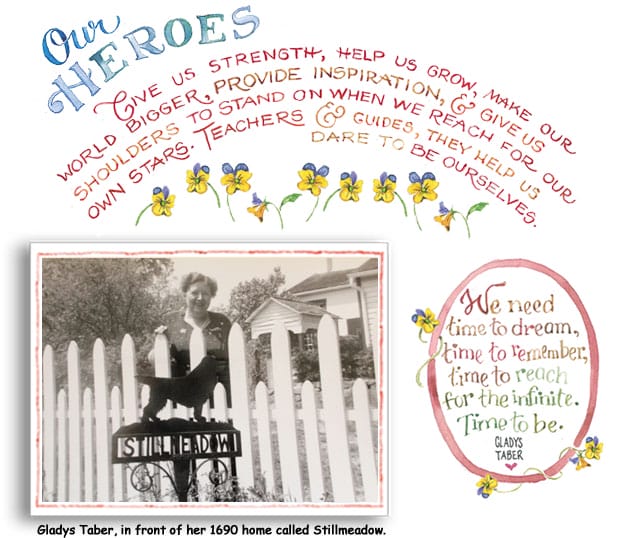 Our
HEROES
GIVE US STRENGTH, HELP US GROW, MAKE OUR
WORLD BIGGER, PROVIDE INSPIRATION, & GIVE US
SHOULDERS TO STAND ON WHEN WE REACH FOR OUR
OWN STARS. TEACHERS & GUIDES, THEY HELP US
DARE TO BE OURSELVES.
STILLMEADOW
Gladys Taber, in front of her 1690 home called Stillmeadow.
We need
time to dream,
time to remember,
time to reach
for the infinite.
Time to be.
GLADYS
TABER